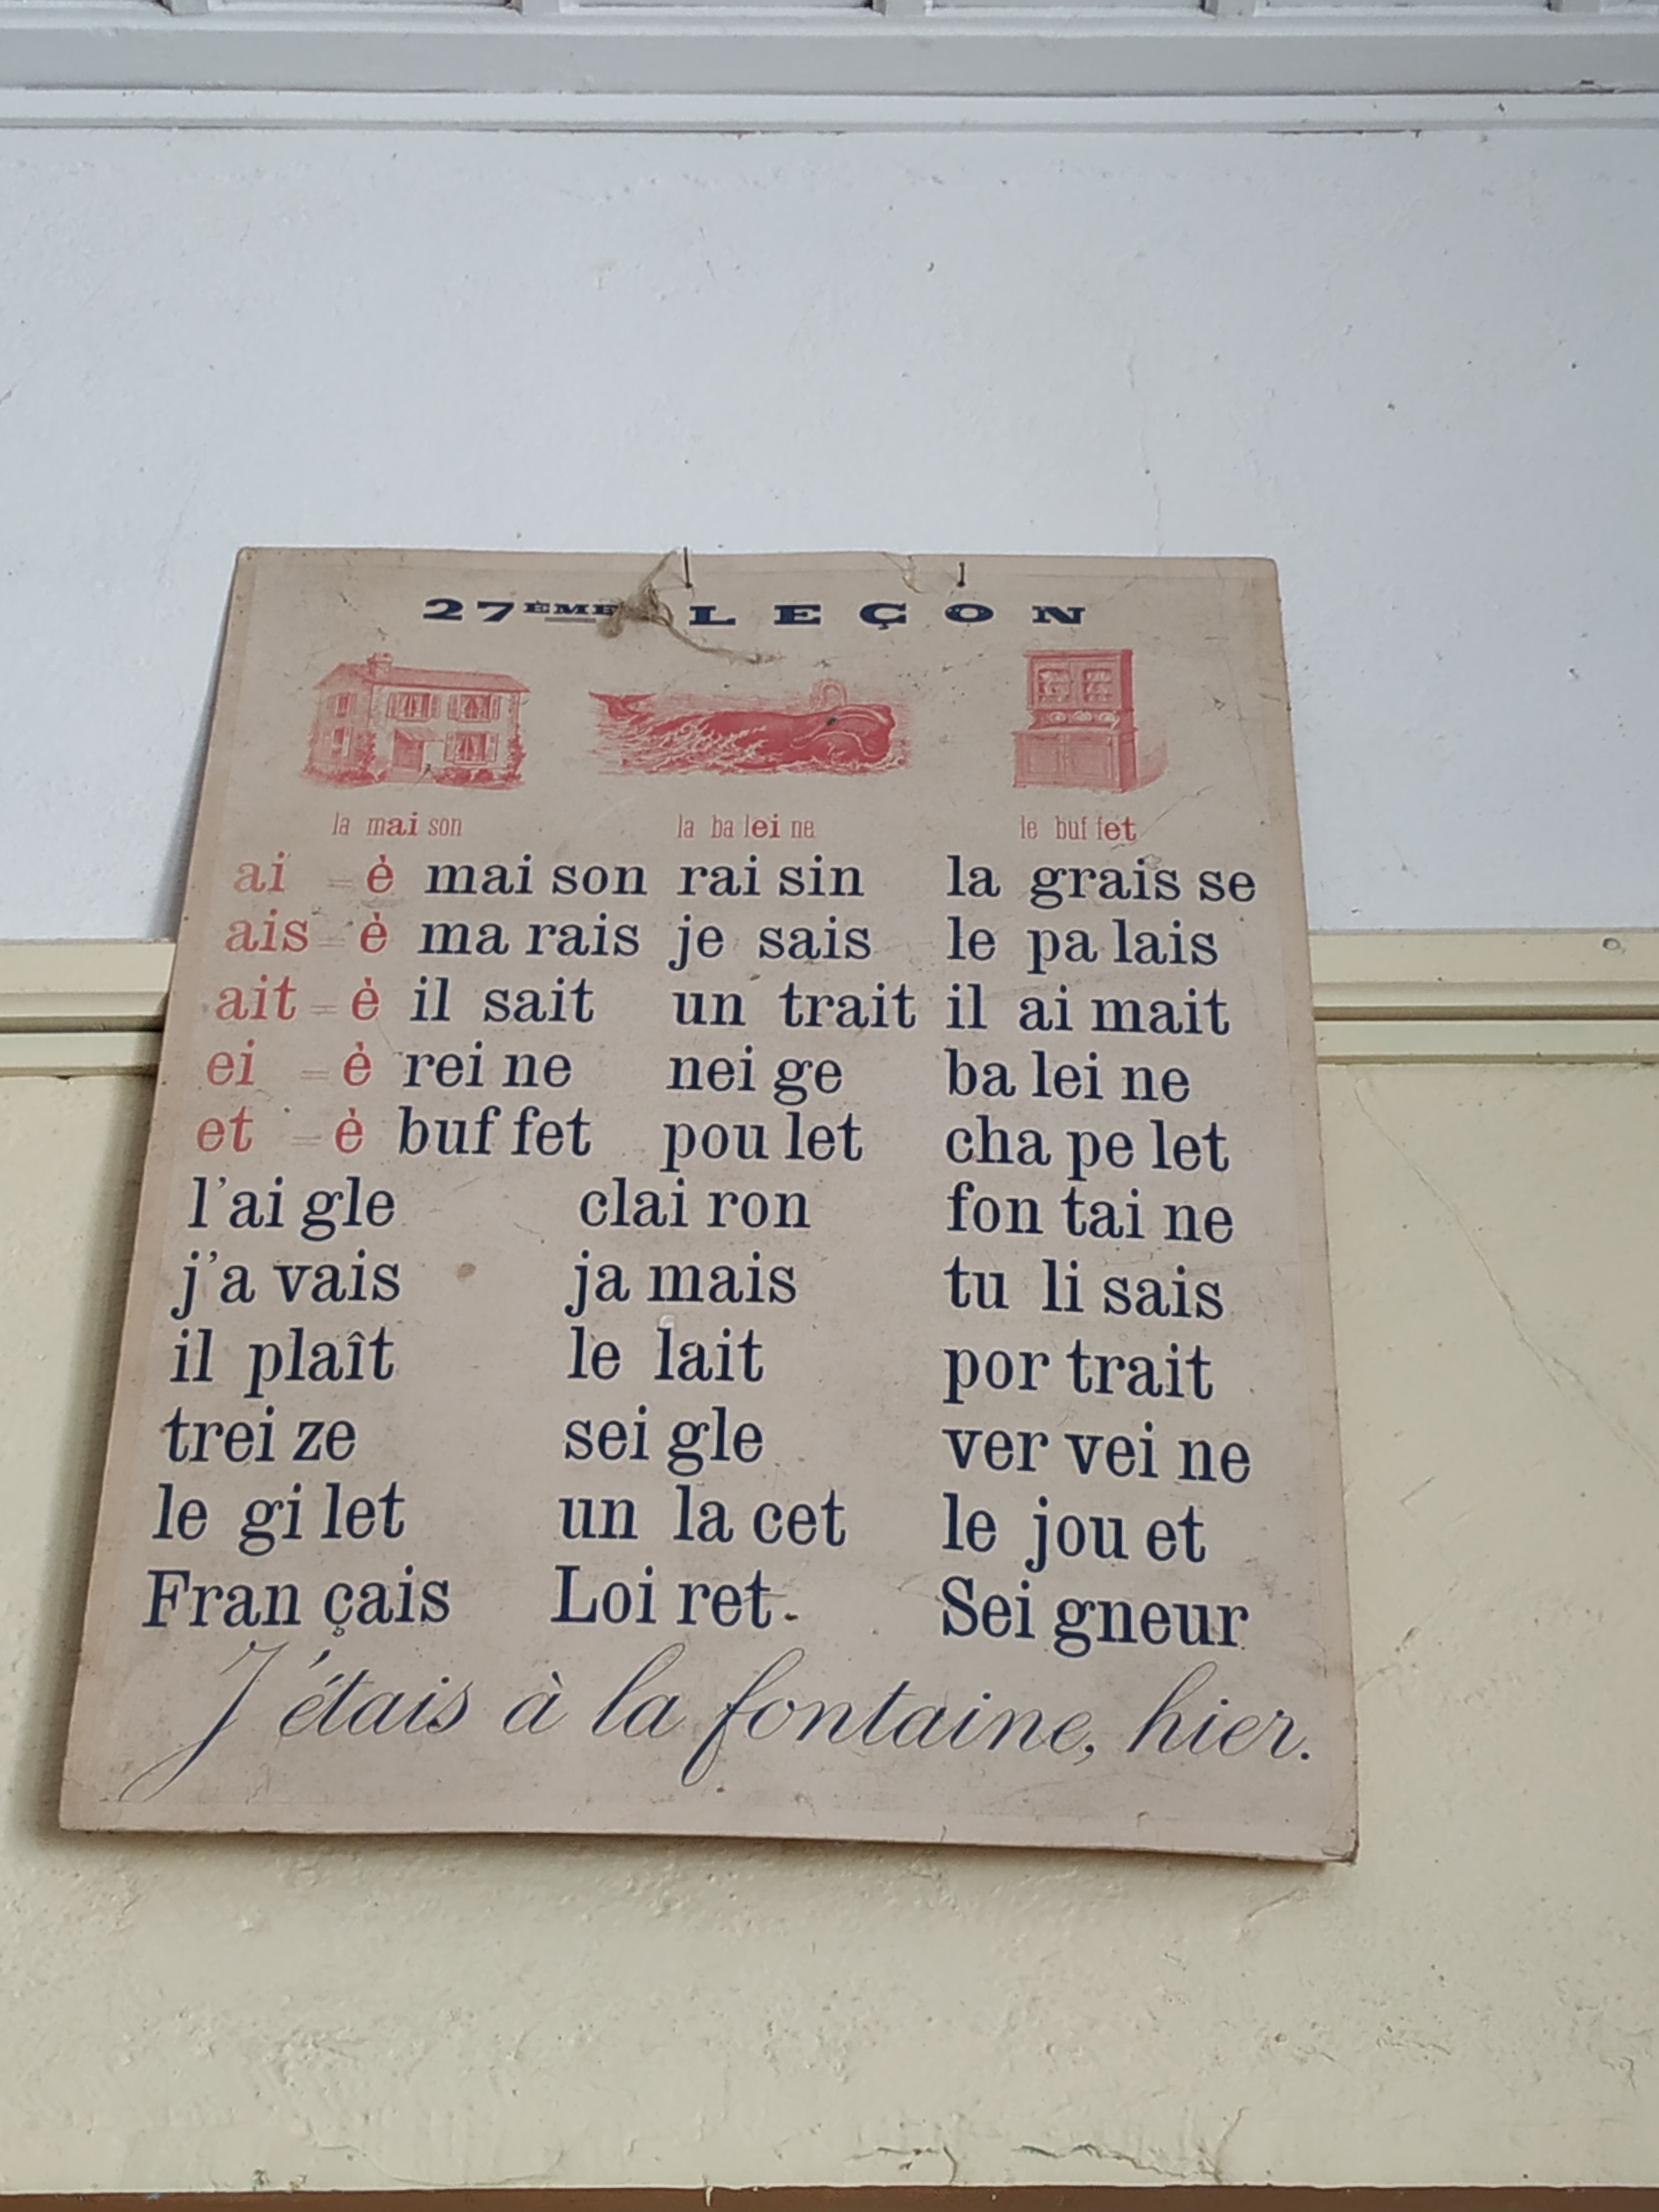 27ÈME LEÇON
la mai son la ba lei ne le buf fet
ai = è mai son rai sin la grais se
ais = è ma rais je sais le pa lais
ait = è il sait un trait il ai mait
ei = è rei ne nei ge ba lei ne
et = è buf fet pou let cha pe let
l'ai gle clai ron fon tai ne
j'a vais ja mais tu li sais
il plaît le lait por trait
trei ze sei gle ver vei ne
le gi let un la cet le jou et
Fran çais Loi ret Sei gneur
J'étais à la fontaine, hier.